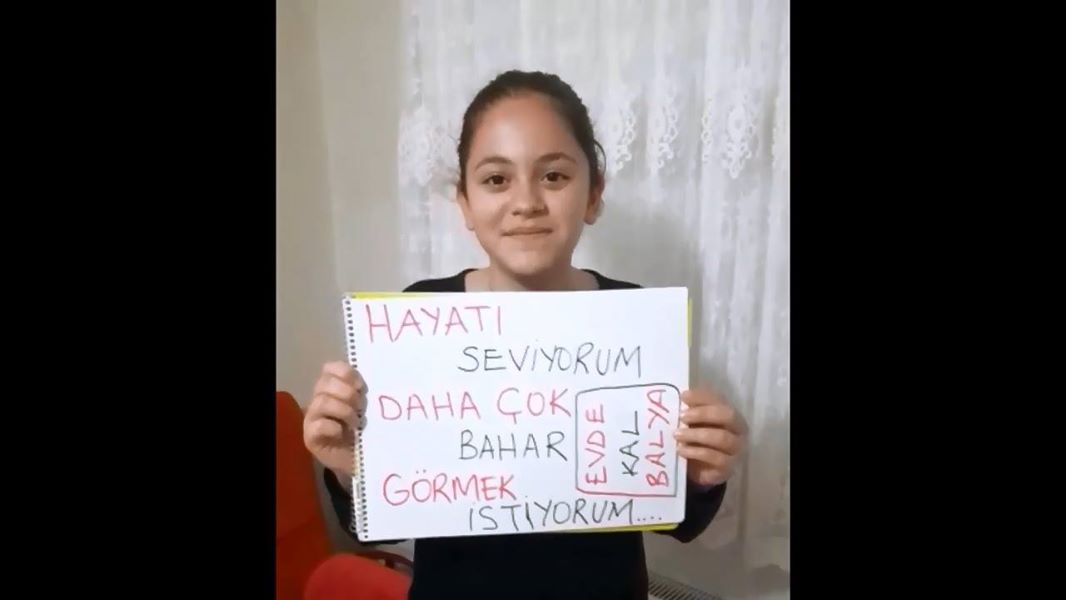 HAYATI
SEVİYORUM
DAHA ÇOK
BAHAR
GÖRMEK
İSTİYORUM....
EVDE
KAL
BALYA